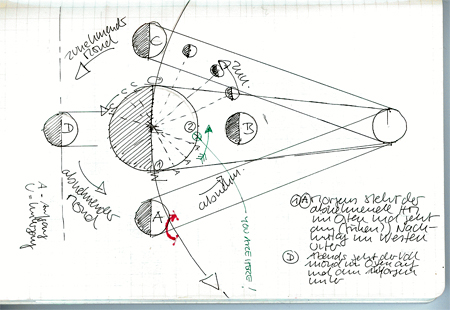 zunehmender
Mond
C
zun.
D
2
B
1
abnehmender
Mond
A
abnehm.
YOU ARE HERE!
A = Aufgang
U = Untergang
1 A Morgens steht der
abnehmende
im Osten und geht
am (frühen) Nach-
mittag im Westen
unter
D Abends geht der Voll
mond im Osten auf
und am Morgen
unter